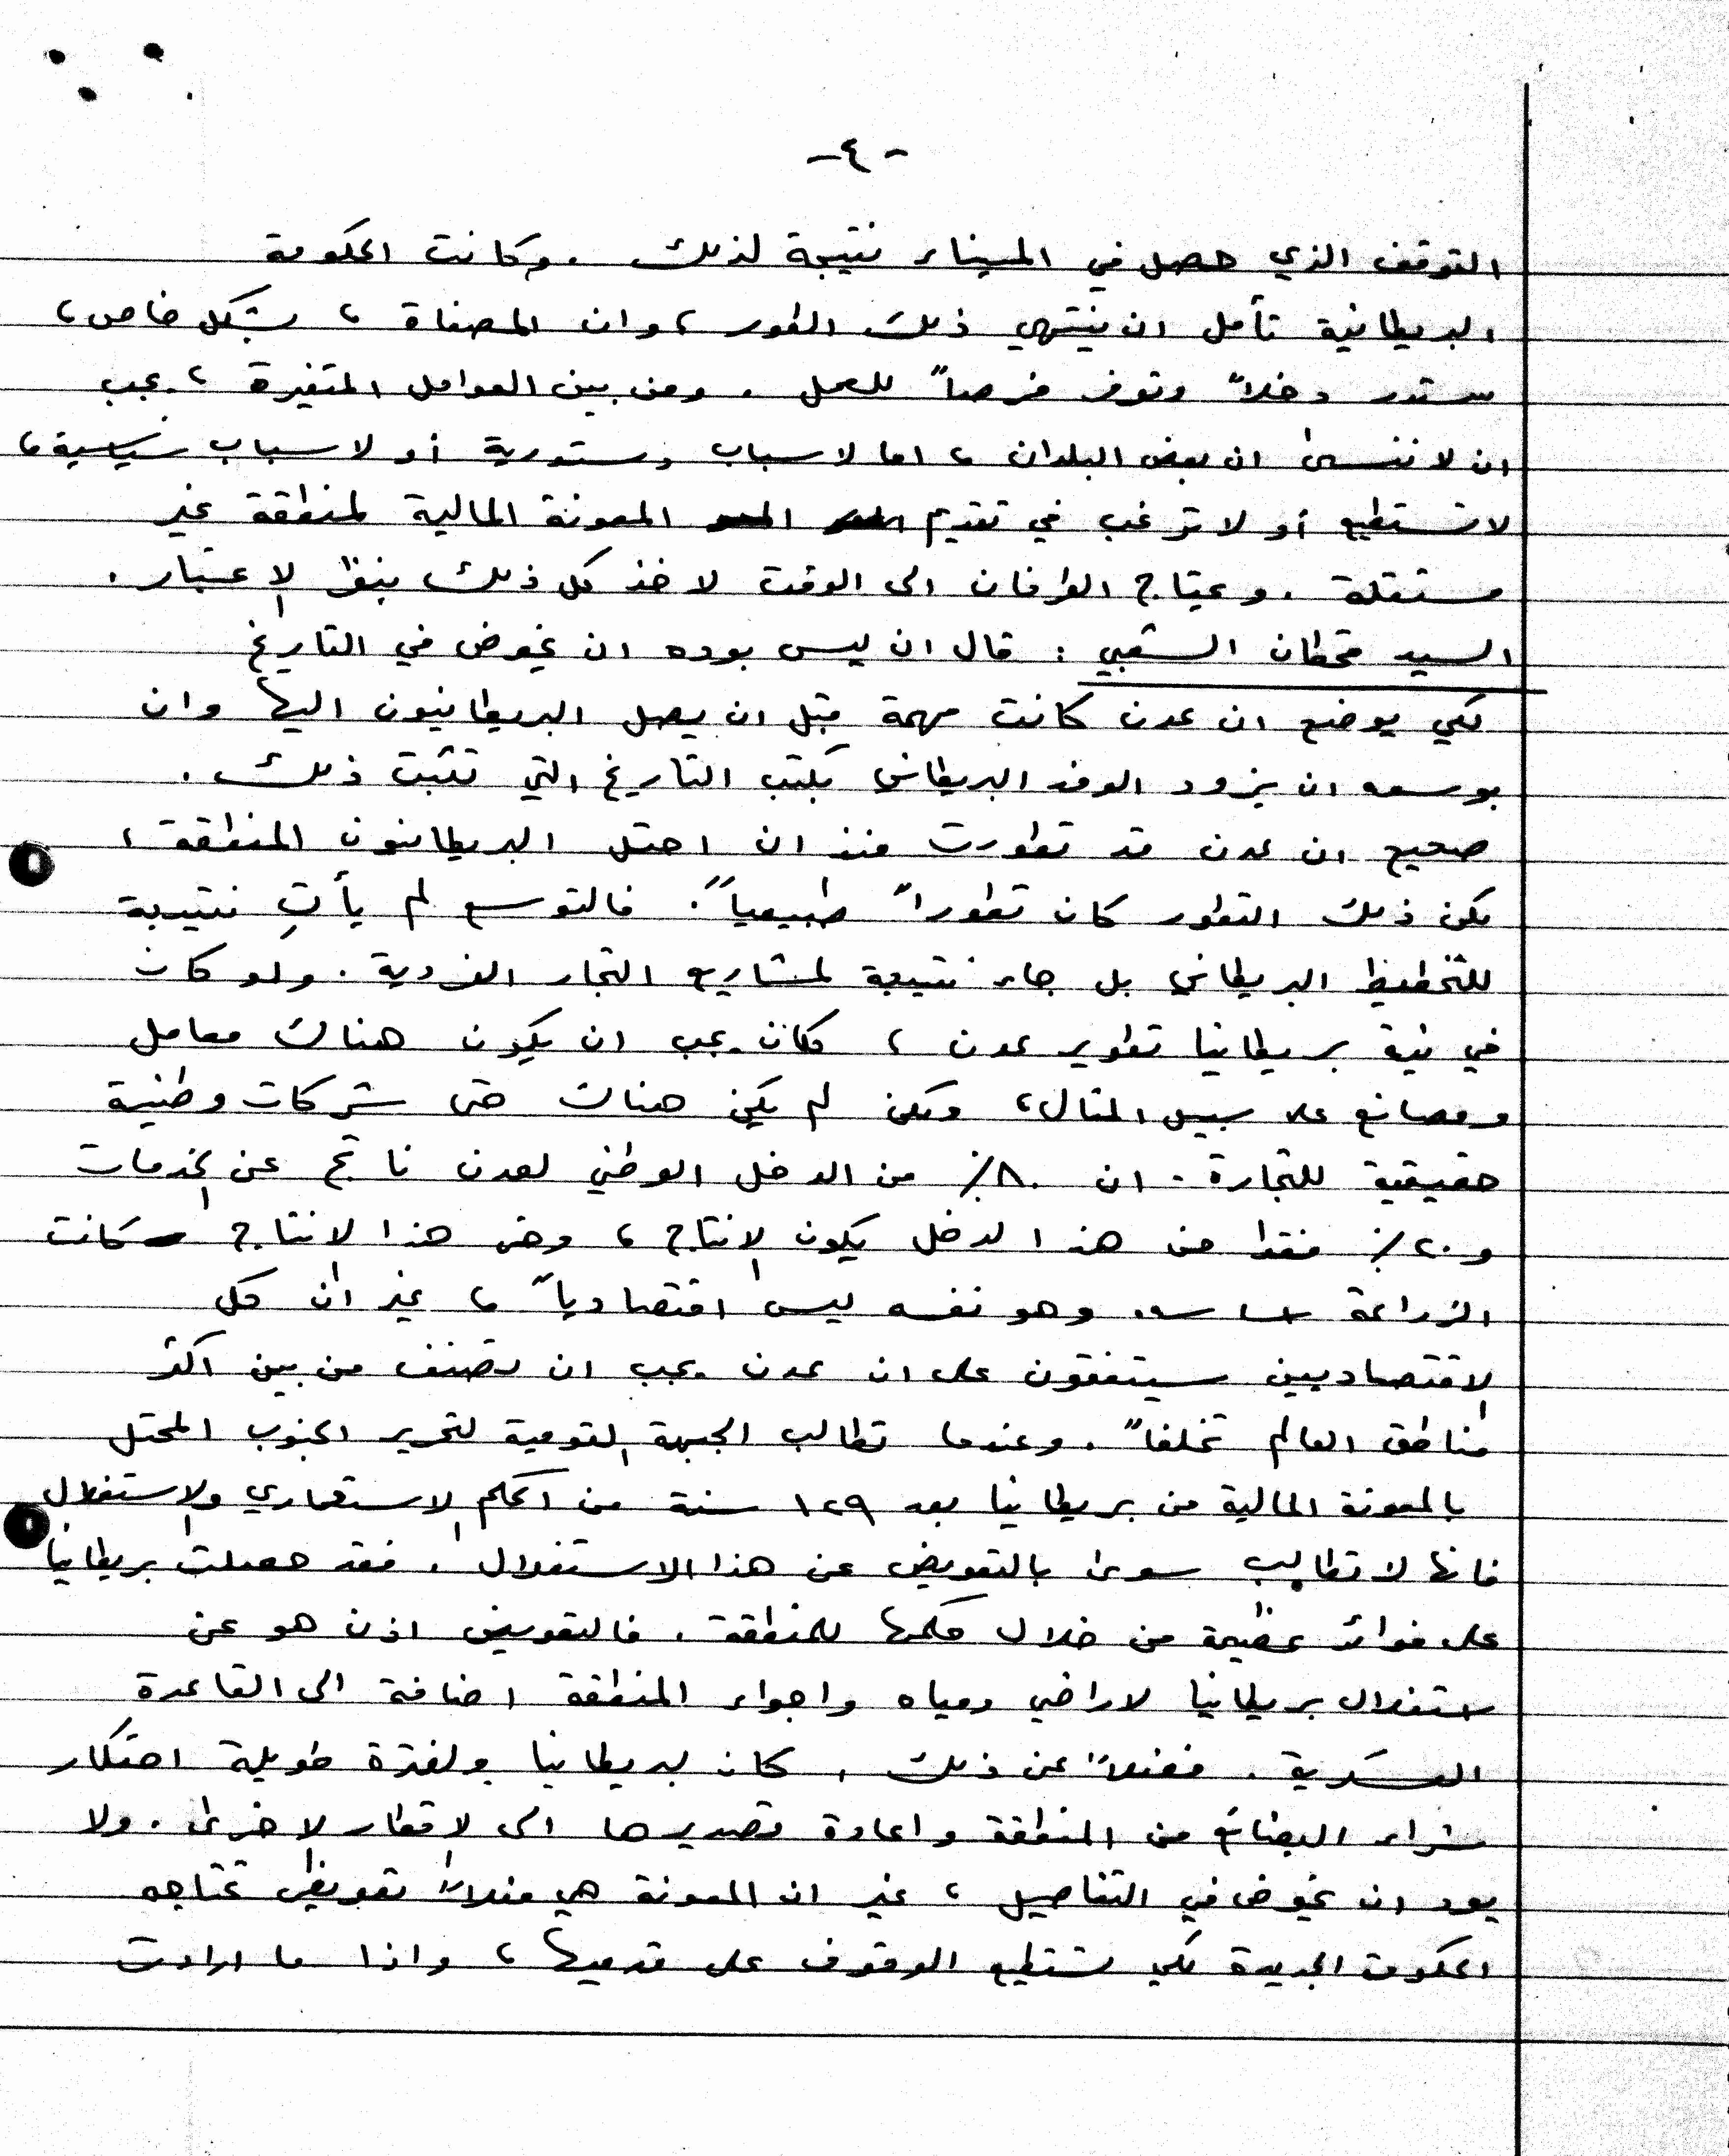 - ٤ -
التوقف الذي حصل في الميناء نتيجة لذلك . وكانت الحكومة
البريطانية تأمل ان ينتهي ذلك الفور ، وان المصفاة ، بشكل خاص ،
ستدر دخلاً وتوفر فرصاً للعمل . ومن بين العوامل المتغيرة ، يجب
ان لا ننسى ان بعض البلدان ، اما لاسباب دستورية أو لاسباب سياسية ،
لا تستطيع أو لا ترغب في تقديم المعونة المالية لمنطقة غير
مستقلة . ويحتاج الطرفان الى الوقت لاخذ كل ذلك بنظر الاعتبار .
السيد قحطان الشعبي : قال ان ليس بوده ان يخوض في التاريخ
لكي يوضح ان عدن كانت مهمة قبل ان يصل البريطانيون اليها وان
بوسعه ان يزود الوفد البريطاني بكتب التاريخ التي تثبت ذلك .
صحيح ان عدن قد تطورت منذ ان احتل البريطانيون المنطقة ،
لكن ذلك التطور كان تطوراً طبيعياً . فالتوسع لم يأتِ نتيجة
للتخطيط البريطاني بل جاء نتيجة لمشاريع التجار الفردية . ولو كان
في نية بريطانيا تطوير عدن ، لكان يجب ان يكون هناك معامل
ومصانع على سبيل المثال ، ولكن لم يكن هناك حتى شركات وطنية
حقيقية للتجارة . ان ٨٠٪ من الدخل الوطني لعدن ناتج عن الخدمات
و ٢٠٪ فقط من هذا الدخل يكون الانتاج ، وحتى هذا الانتاج كانت
الزراعة اساسه وهو نفسه ليس اقتصادياً ، غير ان كل
الاقتصاديين سيتفقون على ان عدن يجب ان تصنف من بين اكثر
مناطق العالم تخلفاً . وعندما تطالب الجبهة القومية لتحرير الجنوب المحتل
بالمعونة المالية من بريطانيا بعد ١٢٩ سنة من الحكم الاستعماري والاستغلال
فانها لا تطالب سوى بالتعويض عن هذا الاستغلال . فقد حصلت بريطانيا
على فوائد عظيمة من خلال حكمها للمنطقة . فالتعويض اذن هو عن
استغلال بريطانيا لاراضي ومياه واجواء المنطقة اضافة الى القاعدة
العسكرية . ففضلاً عن ذلك ، كان لبريطانيا ولفترة طويلة احتكار
شراء البضائع من المنطقة واعادة تصديرها الى الاقطار الاخرى . ولا
يود ان يخوض في التفاصيل ، غير ان المعونة هي فعلاً تعويض تحتاجه
الحكومة الجديدة لكي تستطيع الوقوف على قدميها ، واذا ما ارادت